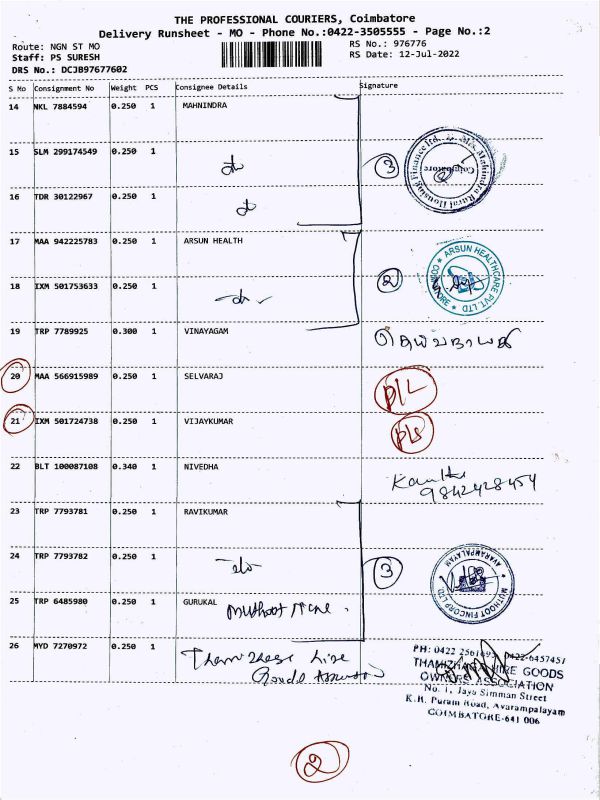 THE PROFESSIONAL COURIERS, Coimbatore
Delivery Runsheet - MO - Phone No.:0422-3505555 - Page No.:2
Route: NGN ST MO
RS No.: 976776
Staff: PS SURESH
RS Date: 12-Jul-2022
DRS No.: DCJB97677602
S Mo Consignment No Weight PCS Consignee Details Signature
14 NKL 7884594 0.250 1 MAHNINDRA
15 SLM 299174549 0.250 1
3
Housing Finance ltd. Mahindra Rural
Coimbatore
16 TDR 30122967 0.250 1
17 MAA 942225783 0.250 1 ARSUN HEALTH
18 IXM 501753633 0.250 1
2
ARSUN HEALTHCARE PVT.LTD ★ COIMBATORE ★
19 TRP 7789925 0.300 1 VINAYAGAM
20 MAA 566915989 0.250 1 SELVARAJ
21 IXM 501724738 0.250 1 VIJAYKUMAR
22 BLT 100087108 0.340 1 NIVEDHA
9842428454
23 TRP 7793781 0.250 1 RAVIKUMAR
24 TRP 7793782 0.250 1
3
MUTHOOT FINCORP LTD. AVARAMPALAYAM
25 TRP 6485980 0.250 1 GURUKAL
Muthoot
26 MYD 7270972 0.250 1
Hire
PH: 0422 0422-6457451
THAMIZHAGA HIRE GOODS
OWNERS ASSOCIATION
No. 1, Jaya Simman Street
K.R. Puram Road, Avarampalayam
COIMBATORE-641 006
2